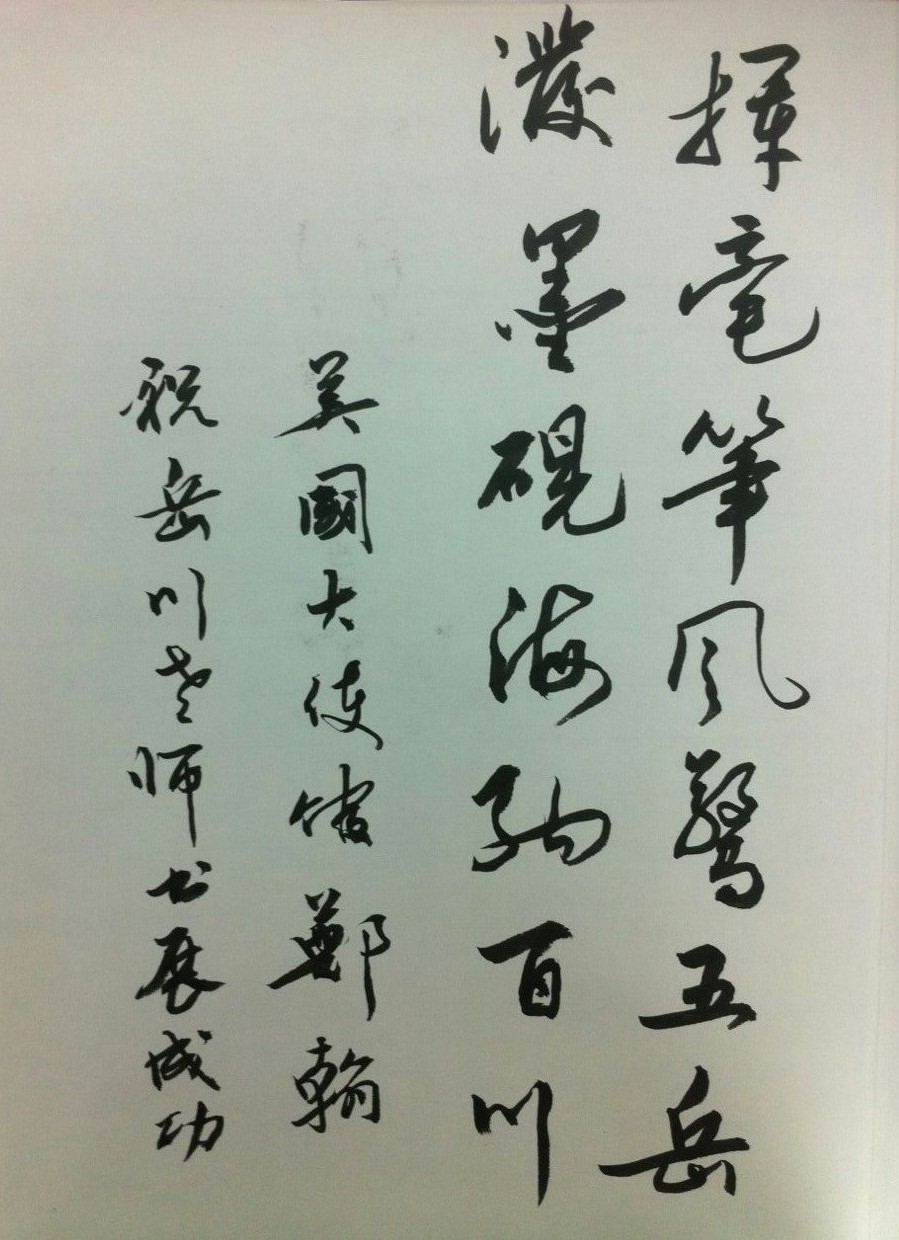 揮毫筆風驚五岳
潑墨硯海納百川
美國大使館鄭翰
祝岳川老师书展成功